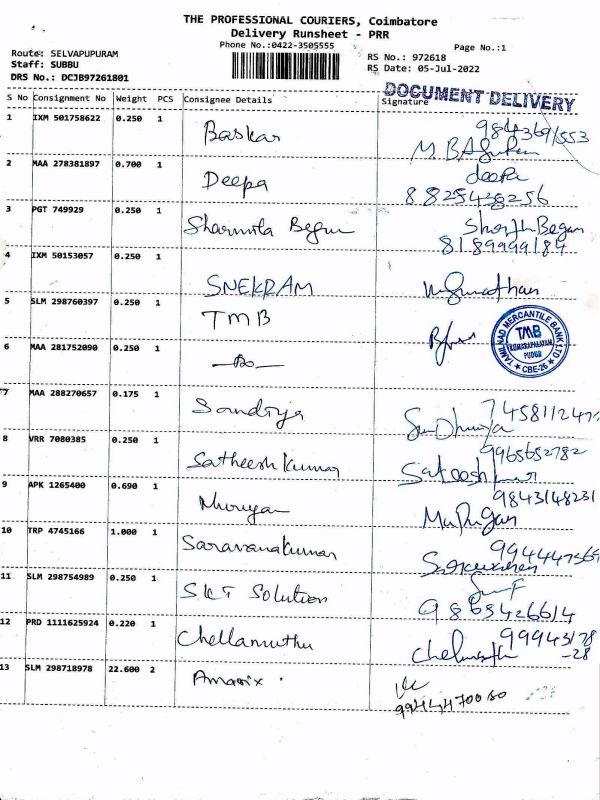 THE PROFESSIONAL COURIERS, Coimbatore
Delivery Runsheet - PRR
Phone No.:0422-3505555
Page No.:1
Route: SELVAPUPURAM
RS No.: 972618
Staff: SUBBU
RS Date: 05-Jul-2022
DRS No.: DCJB97261801
DOCUMENT DELIVERY
S No Consignment No Weight PCS Consignee Details Signature
1 IXM 501758622 0.250 1 Baskar
2 MAA 278381897 0.700 1 Deepa deepa
8825438256
3 PGT 749929 0.250 1 Sharmila Begum
8189999184
4 IXM 50153057 0.250 1 SNEKRAM
5 SLM 298760397 0.250 1 TMB
TAMILNAD MERCANTILE BANK LTD
TMB
PUDUR
CBE-26
6 MAA 281752090 0.250 1 —Do—
7 MAA 288270657 0.175 1 Sandiya
8 VRR 7080385 0.250 1 Satheesh Kumar 9965652782
9 APK 1265400 0.690 1 Murugan 9843148231
Murugan
10 TRP 4745166 1.000 1 Saravanakumar
11 SLM 298754989 0.250 1 SKT Solution
9865426614
12 PRD 1111625924 0.220 1 Chellamuthu 99943178
-28
13 SLM 298718978 22.600 2 Amarix